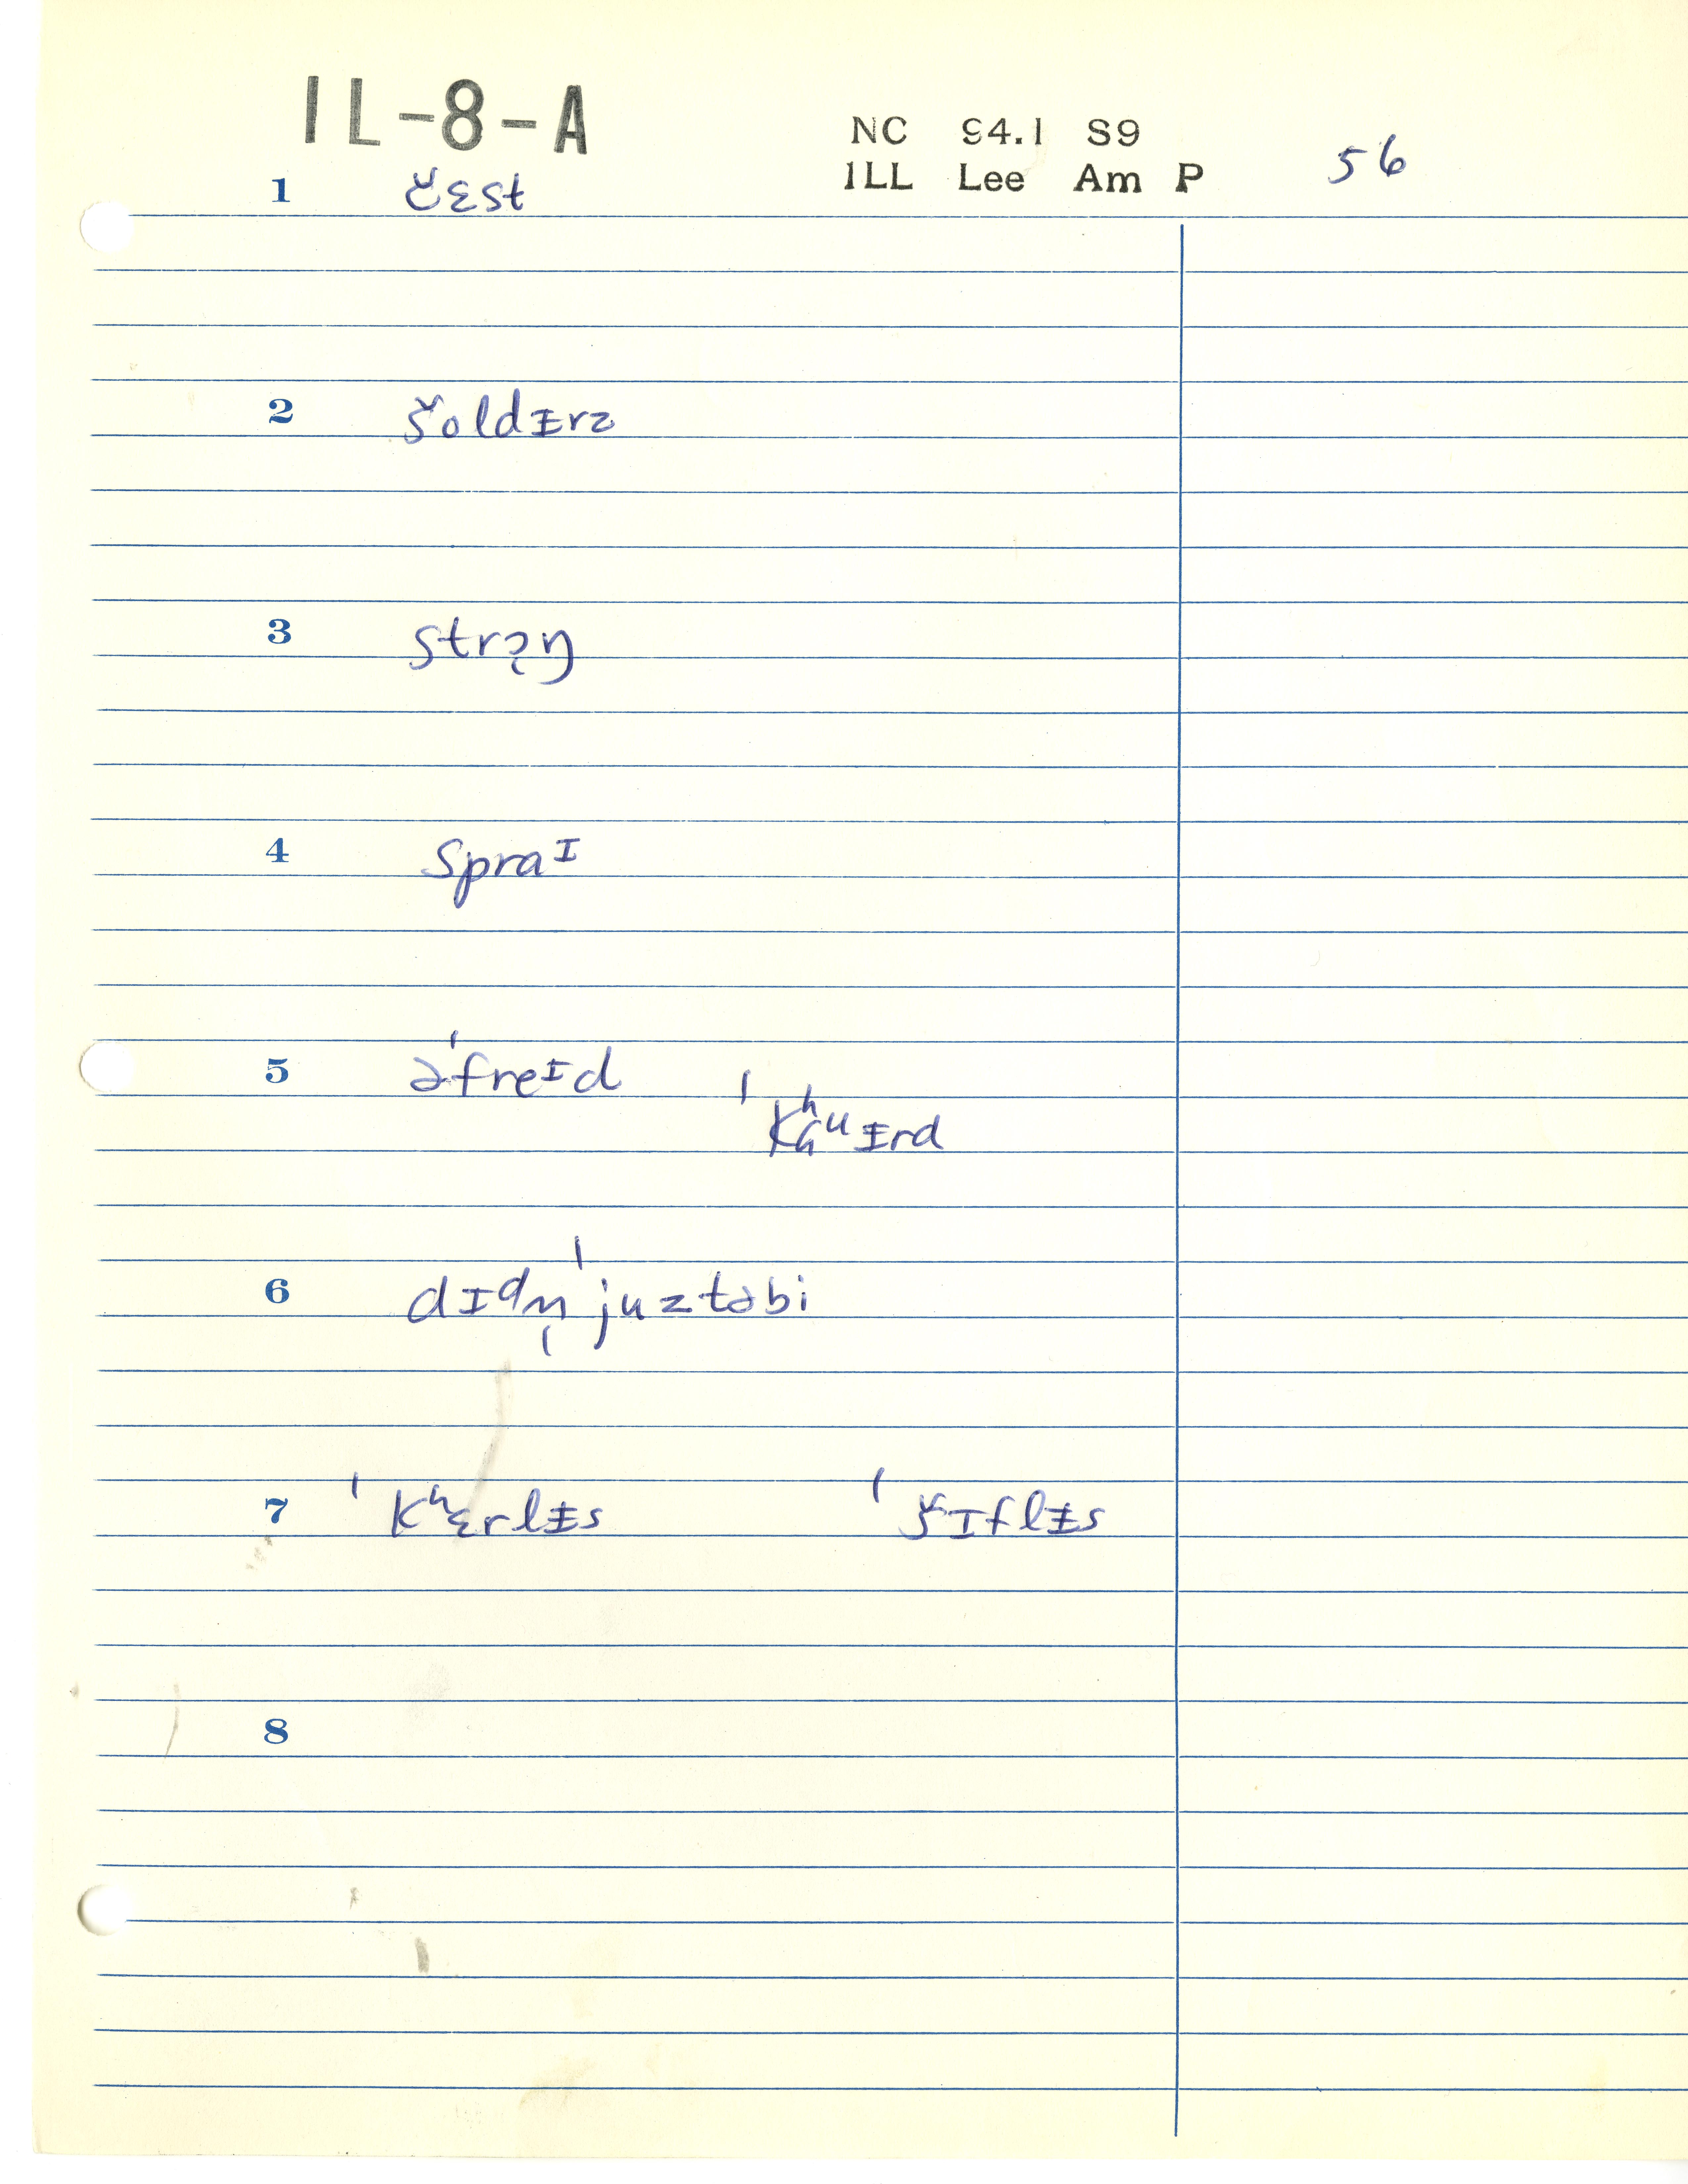 IL-8-A
NC 94.1 S9
ILL Lee Am P
56
1 čɛst
2 šoldᵻrz
3 strɔ̨ŋ
4 spraᶦ
5 əˈfreɪd ˈkʰuᵻrd
6 dɪᵈn̩ˈjuztəbi
7 ˈkʰɛrlᵻs ˈšɪflᵻs
8